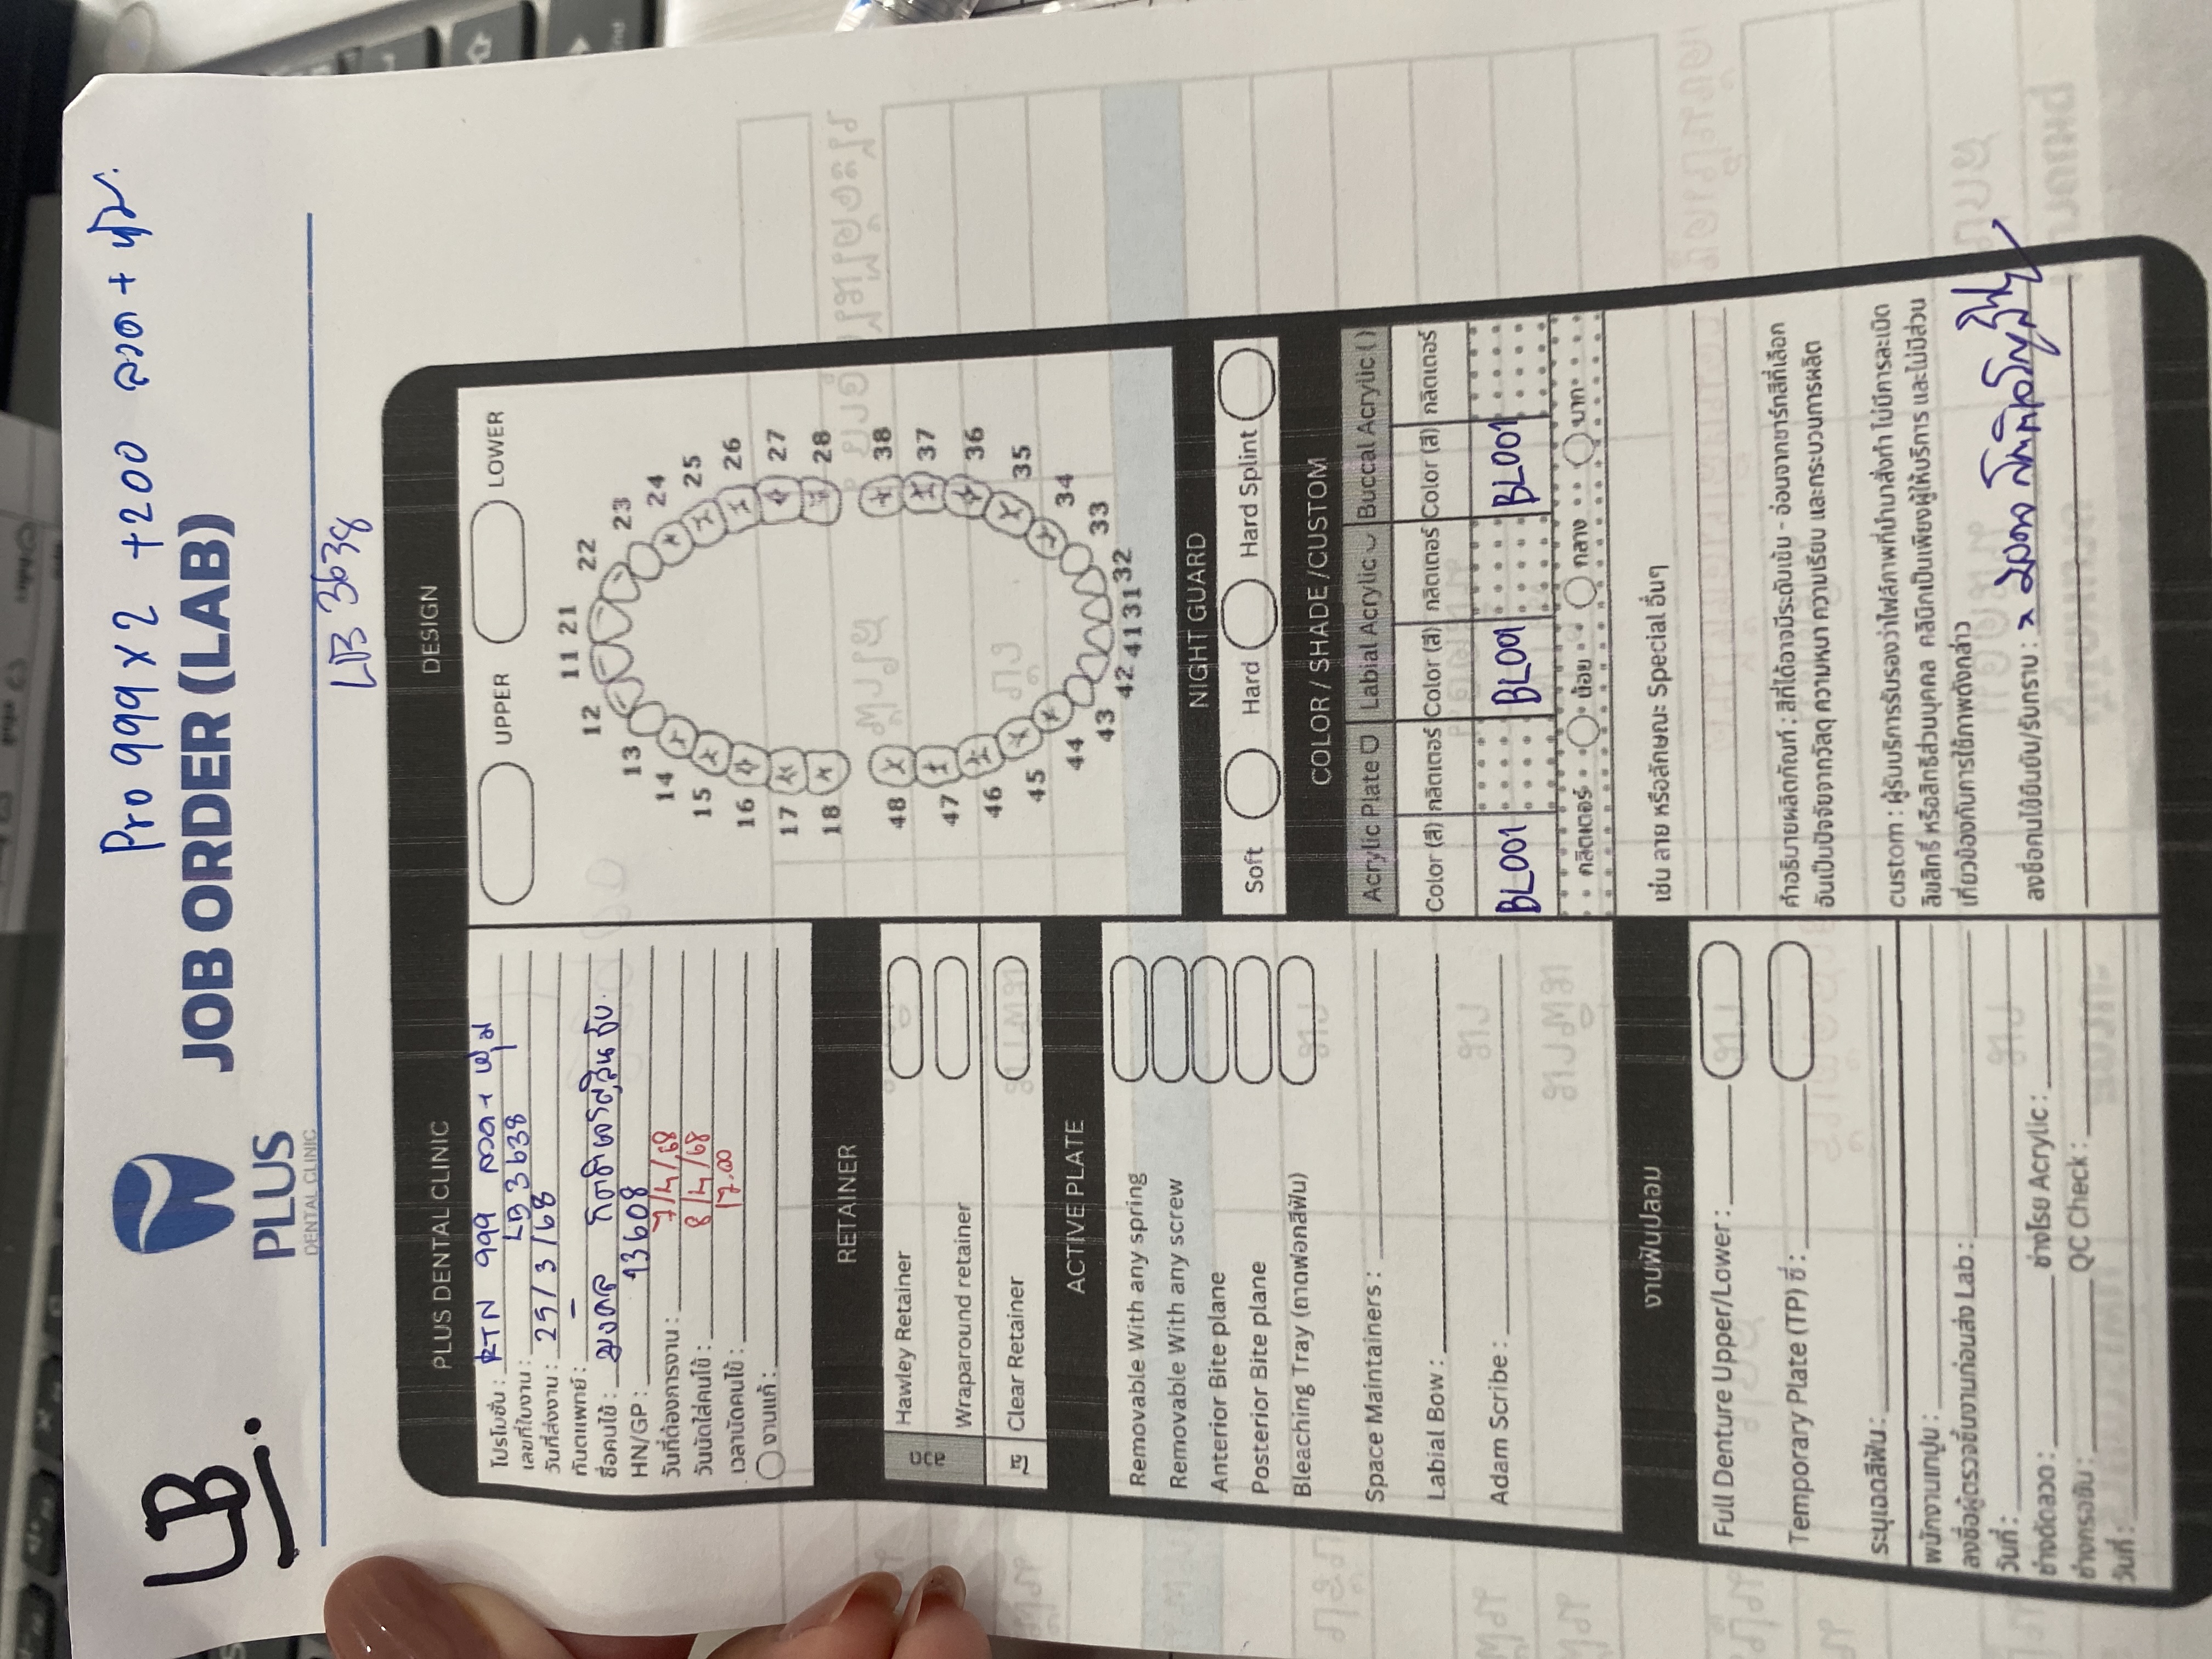 Pro 999 x 2 +200 ลวด + หุ้ม
LB.
PLUS
DENTAL CLINIC
JOB ORDER (LAB)
LB 3638
PLUS DENTAL CLINIC
โปรโมชั่น : RTN 999 ลวด + หุ้ม
เลขที่ใบงาน : LB 3638
วันที่ส่งงาน : 25/3/68
ทันตแพทย์ : -
ชื่อคนไข้ : มงคล
HN/GP : 13608
วันที่ต้องการงาน : 7/4/68
วันนัดใส่คนไข้ : 8/4/68
เวลานัดคนไข้ : 17.00
งานแก้ :
RETAINER
ลวด
Hawley Retainer
Wraparound retainer
ใส
Clear Retainer
ACTIVE PLATE
Removable With any spring
Removable With any screw
Anterior Bite plane
Posterior Bite plane
Bleaching Tray (ถาดฟอกสีฟัน)
Space Maintainers :
Labial Bow :
Adam Scribe :
งานฟันปลอม
Full Denture Upper/Lower :
Temporary Plate (TP) ซี่ :
ระบุเฉดสีฟัน :
พนักงานเทปูน :
ลงชื่อผู้ตรวจชิ้นงานก่อนส่ง Lab :
วันที่ :
ช่างดัดลวด : ช่างโรย Acrylic :
ช่างกรอขัน : QC Check :
วันที่ :
DESIGN
UPPER LOWER
11 21
12 22
13 23
14 24
15 25
16 26
17 27
18 28
48 38
47 37
46 36
45 35
44 34
43 33
42 41 31 32
NIGHT GUARD
Soft Hard Hard Splint
COLOR / SHADE /CUSTOM
Acrylic Plate Labial Acrylic Buccal Acrylic ( )
Color (สี) กลิตเตอร์ Color (สี) กลิตเตอร์ Color (สี) กลิตเตอร์
BL001 BL001 BL001
กลิตเตอร์ น้อย กลาง มาก
เช่น ลาย หรือลักษณะ Special อื่นๆ
คำอธิบายผลิตภัณฑ์ : สีที่ได้อาจมีระดับเข้ม - อ่อนจากชาร์ทสีที่เลือก
อันเป็นปัจจัยจากวัสดุ ความหนา ความเรียบ และกระบวนการผลิต
custom : ผู้รับบริการรับรองว่าไฟล์ภาพที่นำมาสั่งทำ ไม่มีการละเมิด
ลิขสิทธิ์ หรือสิทธิส่วนบุคคล คลินิกเป็นเพียงผู้ให้บริการ และไม่มีส่วน
เกี่ยวข้องกับการใช้ภาพดังกล่าว
ลงชื่อคนไข้ยืนยัน/รับทราบ : x